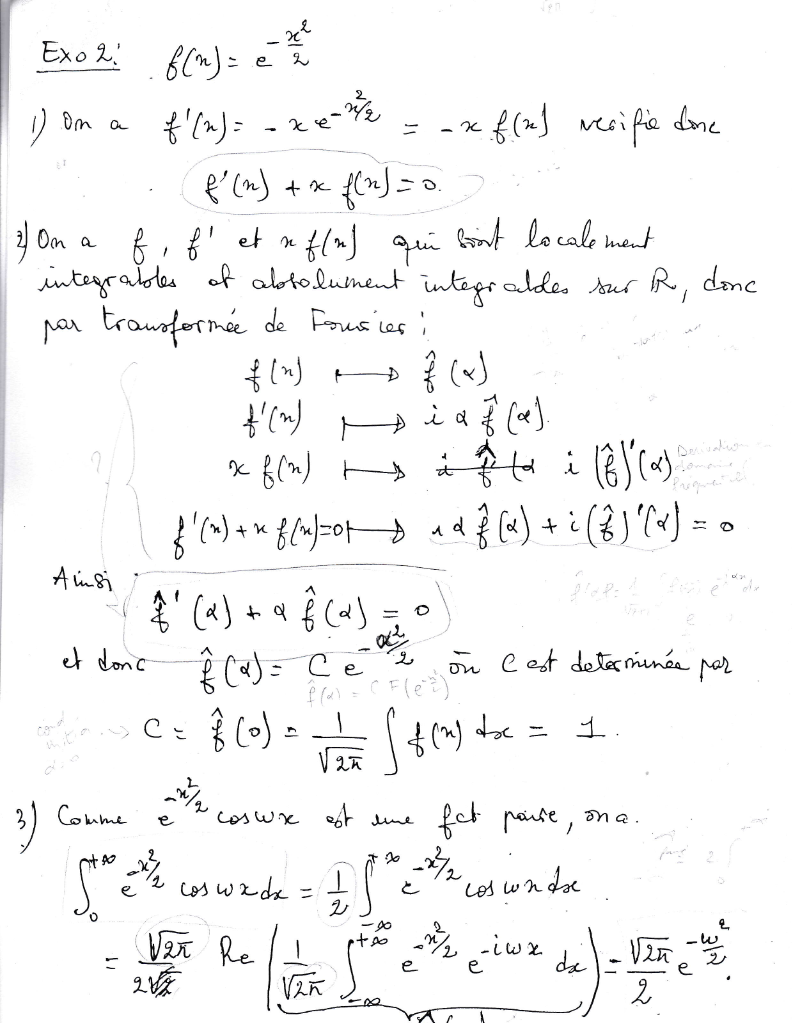 Exo 2: f(x) = e^{-x²/2}
1) On a f'(x) = -x e^{-x²/2} = -x f(x) verifie donc
f'(x) + x f(x) = 0.
2) On a f, f' et x f(x) qui sont localement
integrables et absolument integrables sur ℝ, donc
par transformée de Fourier :
f(x) ⟼ f̂(α)
f'(x) ⟼ i α f̂(α).
x f(x) ⟼ i (f̂)'(α) Derivation domaine
?
f'(x) + x f(x) = 0 ⟼ i α f̂(α) + i (f̂)'(α) = 0
Ainsi
f̂'(α) + α f̂(α) = 0
et donc f̂(α) = C e^{-α²/2} où C est determinée par
f̂(α) = C F(e^{-x²/2})
C = f̂(0) = 1/√2π ∫ f(x) dx = 1.
3) Comme e^{-x²/2} cos ωx est une fct paire, on a.
∫_0^{+∞} e^{-x²/2} cos ωx dx = 1/2 ∫_{-∞}^{+∞} e^{-x²/2} cos ωx dx
= √2π/2 Re ( 1/√2π ∫_{-∞}^{+∞} e^{-x²/2} e^{-iωx} dx ) = √2π/2 e^{-ω²/2}.